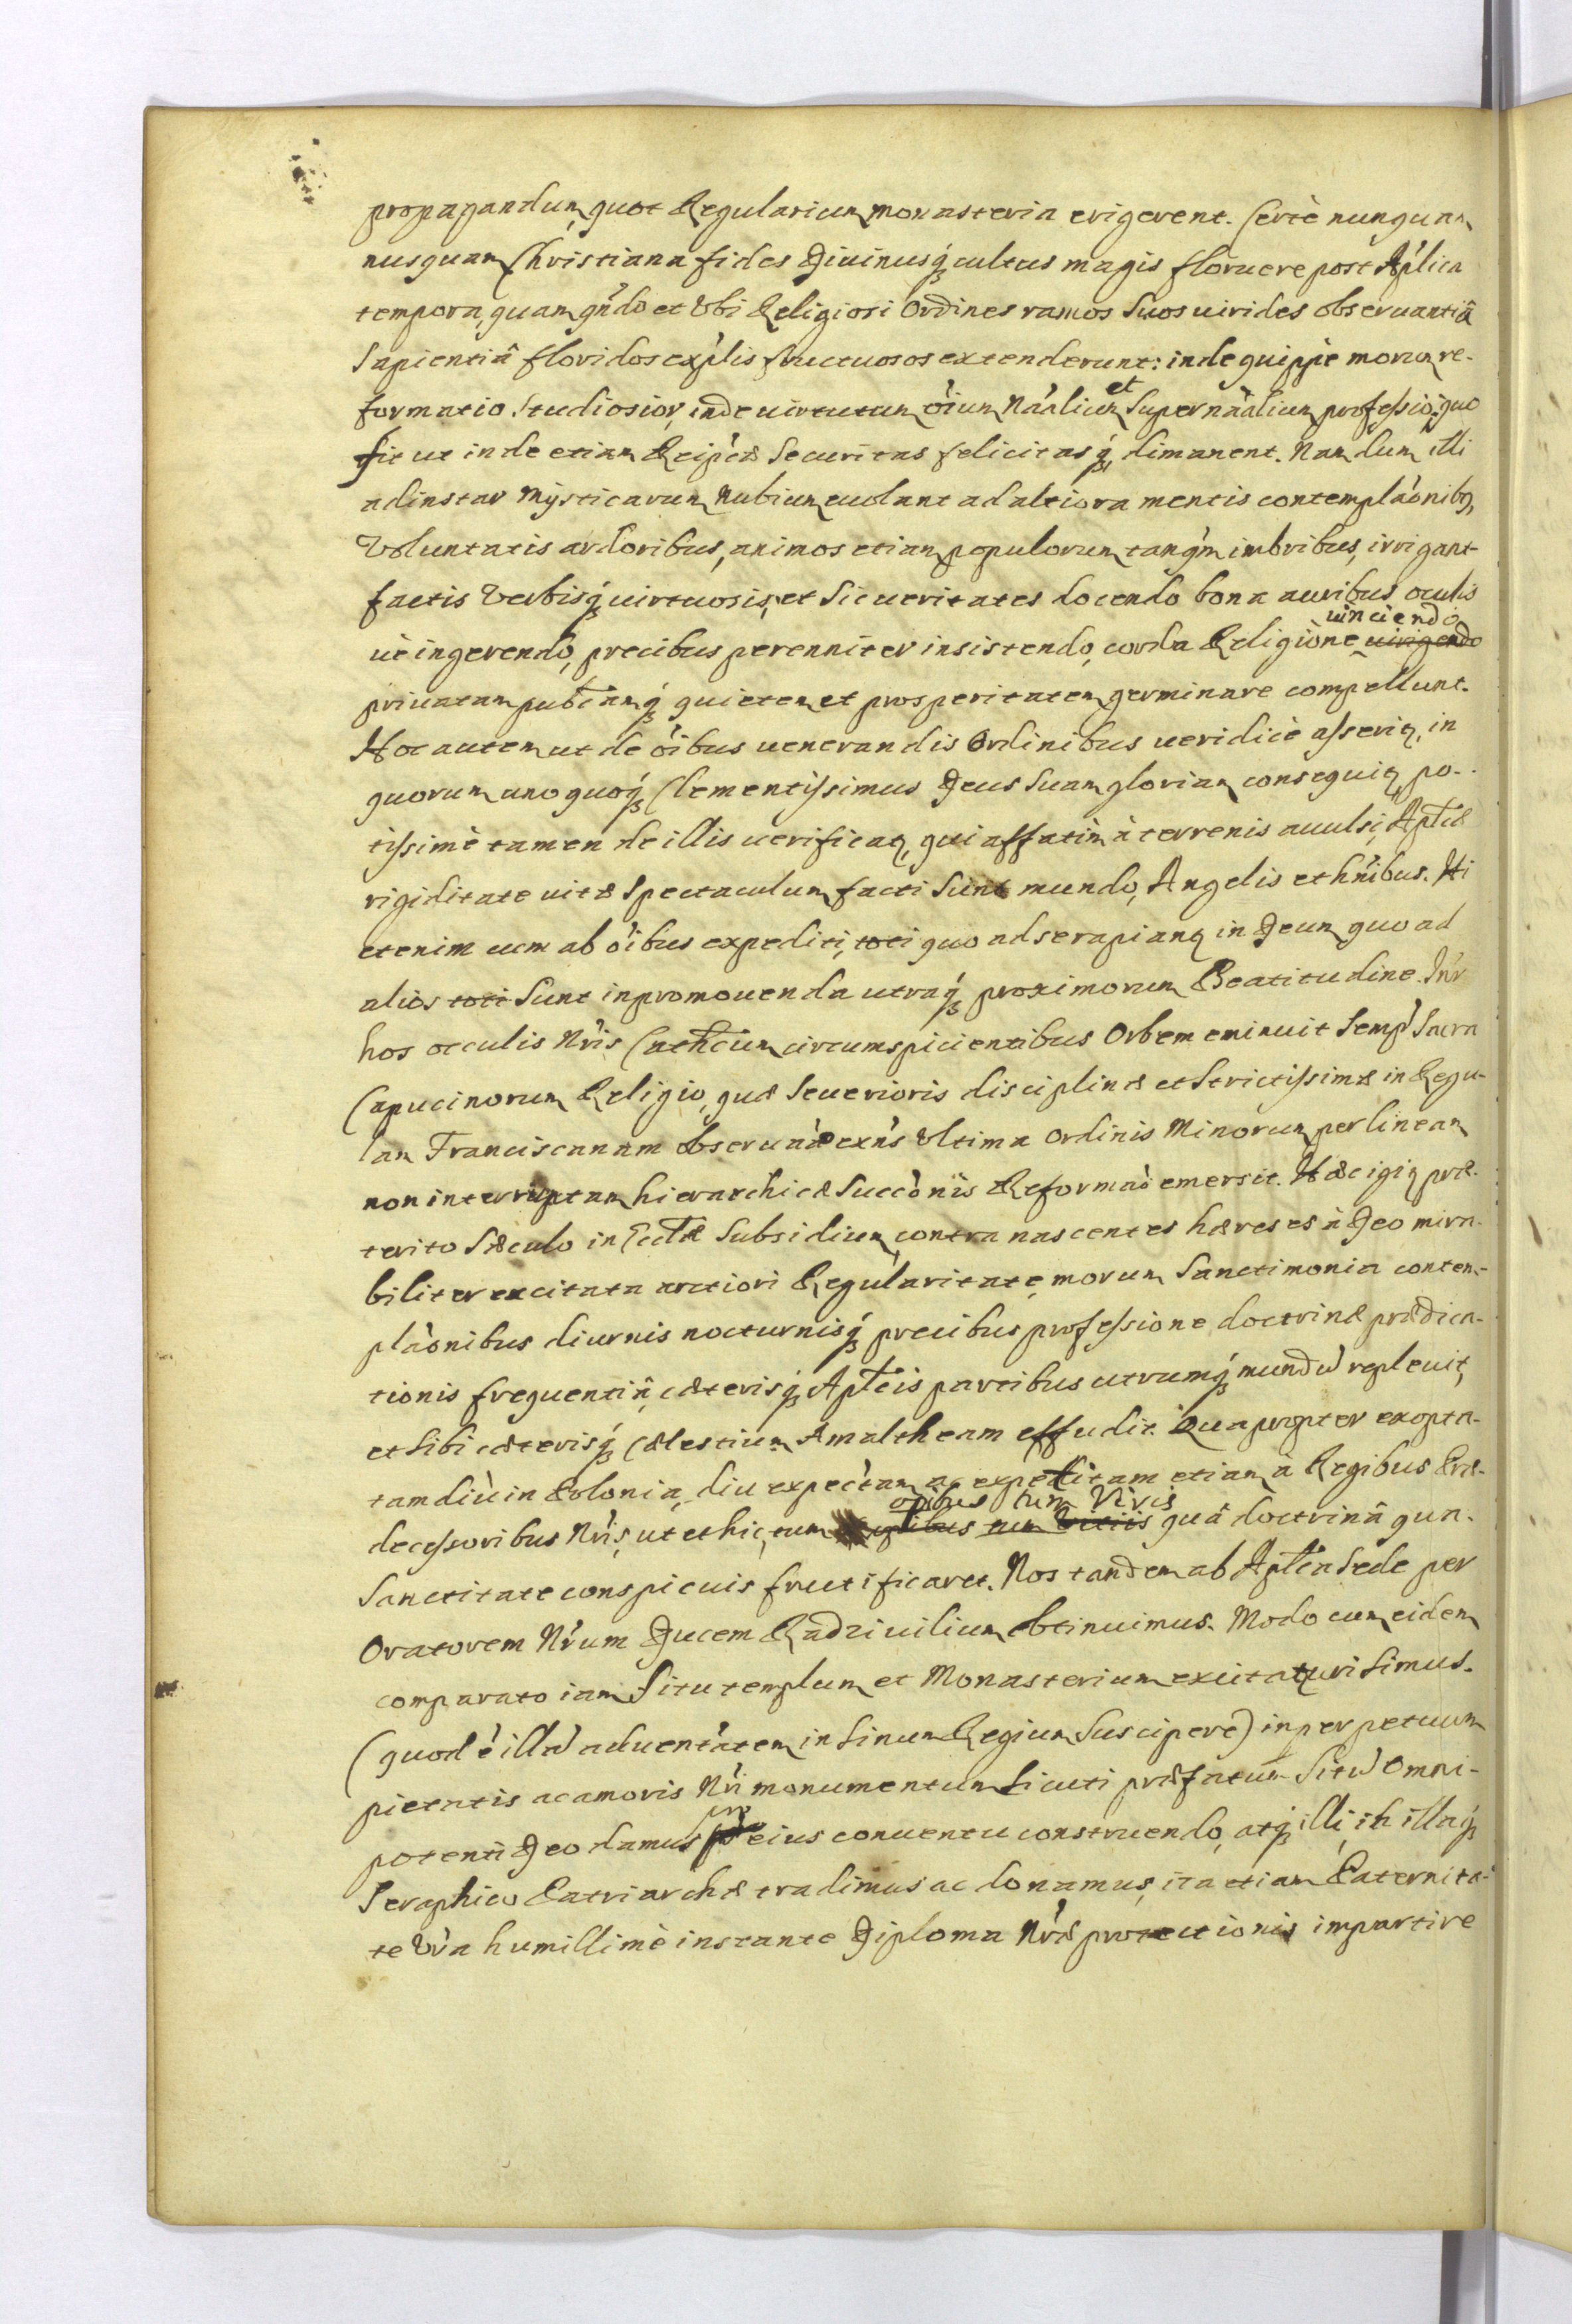 propagandum, quot Regularium monasteria erigerent. Certè nunquam
nusquam Christiana fides Diuinusq́; cultus magis floruere post Ap̃lica
tempora, quam qñdo et Vbi Religiosi Ordines ramos suos uirides obseruantiâ
Sapientiâ floridos exp̃lis fructuosos extenderunt: inde quippè morum re-
formatio studiosior, inde uirtutum oĩum Nãalium et Supernãalium professio: quo
fit ut inde etiam Reip̃cæ Securitas felicitasq́; dimanent. Nam dum illi
adinstar mysticarum Nubium euolant ad altiora mentis contemplãonibꝰ,
Voluntatis ardoribus, animos etiam populorum tanq̃m imbribus, irrigant
factis Verbisq́; uirtuosis, et Sic ueritates docendo bona auribus oculis
uè ingerendo, precibus perenniter insistendo, corda Religione ~~uirigendo~~ uinciendo
priuatam publ̃camq́; quietem et prosperitatem germinare compellunt.
Hoc autem ut de oĩbus uenerandis Ordinibus ueridicè asseritʳ, in
quorum uno quoq́; Clementissimus Deus Suam gloriam consequitʳ, po-
tissimè tamen de illis uerificatʳ, qui affatìm à terrenis auulsi, Apl̃cæ
rigiditate uitæ Spectaculum facti Sunt mundo, Angelis et hñibus. Hi
etenim cum ab oĩbus expediti, ~~toti~~ quo ad se rapiantʳ in Deum, quo ad
alios ~~toti~~ Sunt in promouenda utraq́; proximorum Beatitudine. Inr̃
hos occulis Nr̃is Cathol̃cum circumspicientibus Orbem eminuit Semp̃ Sacra
Capucinorum Religio, quæ Seuerioris disciplinæ et Strictissimæ in Regu-
lam Franciscanam obseruãæ exñs Vltima Ordinis Minorum per lineam
non interruptam hierarchicæ Succõnis Reformaõ emersit. Hæc igitʳ præ-
terito Sæculo in Eccl̃æ Subsidium, contra nascentes hæreses à Deo mira-
biliter excitata arctiori Regularitate, morum Sanctimonia contem-
plãonibus diurnis nocturnisq́; precibus professione doctrinæ prædica-
tionis frequentiâ, cæterisq́; Apl̃cis partibus utrumq́; mundũ repleuit,
et Sibi cæterisq́; Cælestium Amaltheam effudit. Quapropter exopta-
tam diù in Polonia, diu expectãtam ac expetitam etiam à Regibus Præ-
decessoribus Nr̃is, ut et hic, tum opibus tum Viris quâ doctrinâ qua
Sanctitate conspicuis fructificaret. Nos tandem ab Apl̃ca Sede per
Oratorem Nr̃um Ducem Radziuilium obtinuimus. Modo cum eidem
comparato iam Situ templum et Monasterium excitaturi Simus.
(quod è illã aduentãtem in Sinum Regium Suscipere) in perpetuum
pietatis ac amoris Nr̃i monumentum Sicuti præfatum Sitũ Omni-
potenti Deo damus pro eius conuentu construendo, atq́; illi, in illaq́;
Seraphico Patriarchæ tradimus ac donamus, ita etiam Paternita-
te Vr̃a humillimè instante Diploma Nr̃æ protectionis impartire